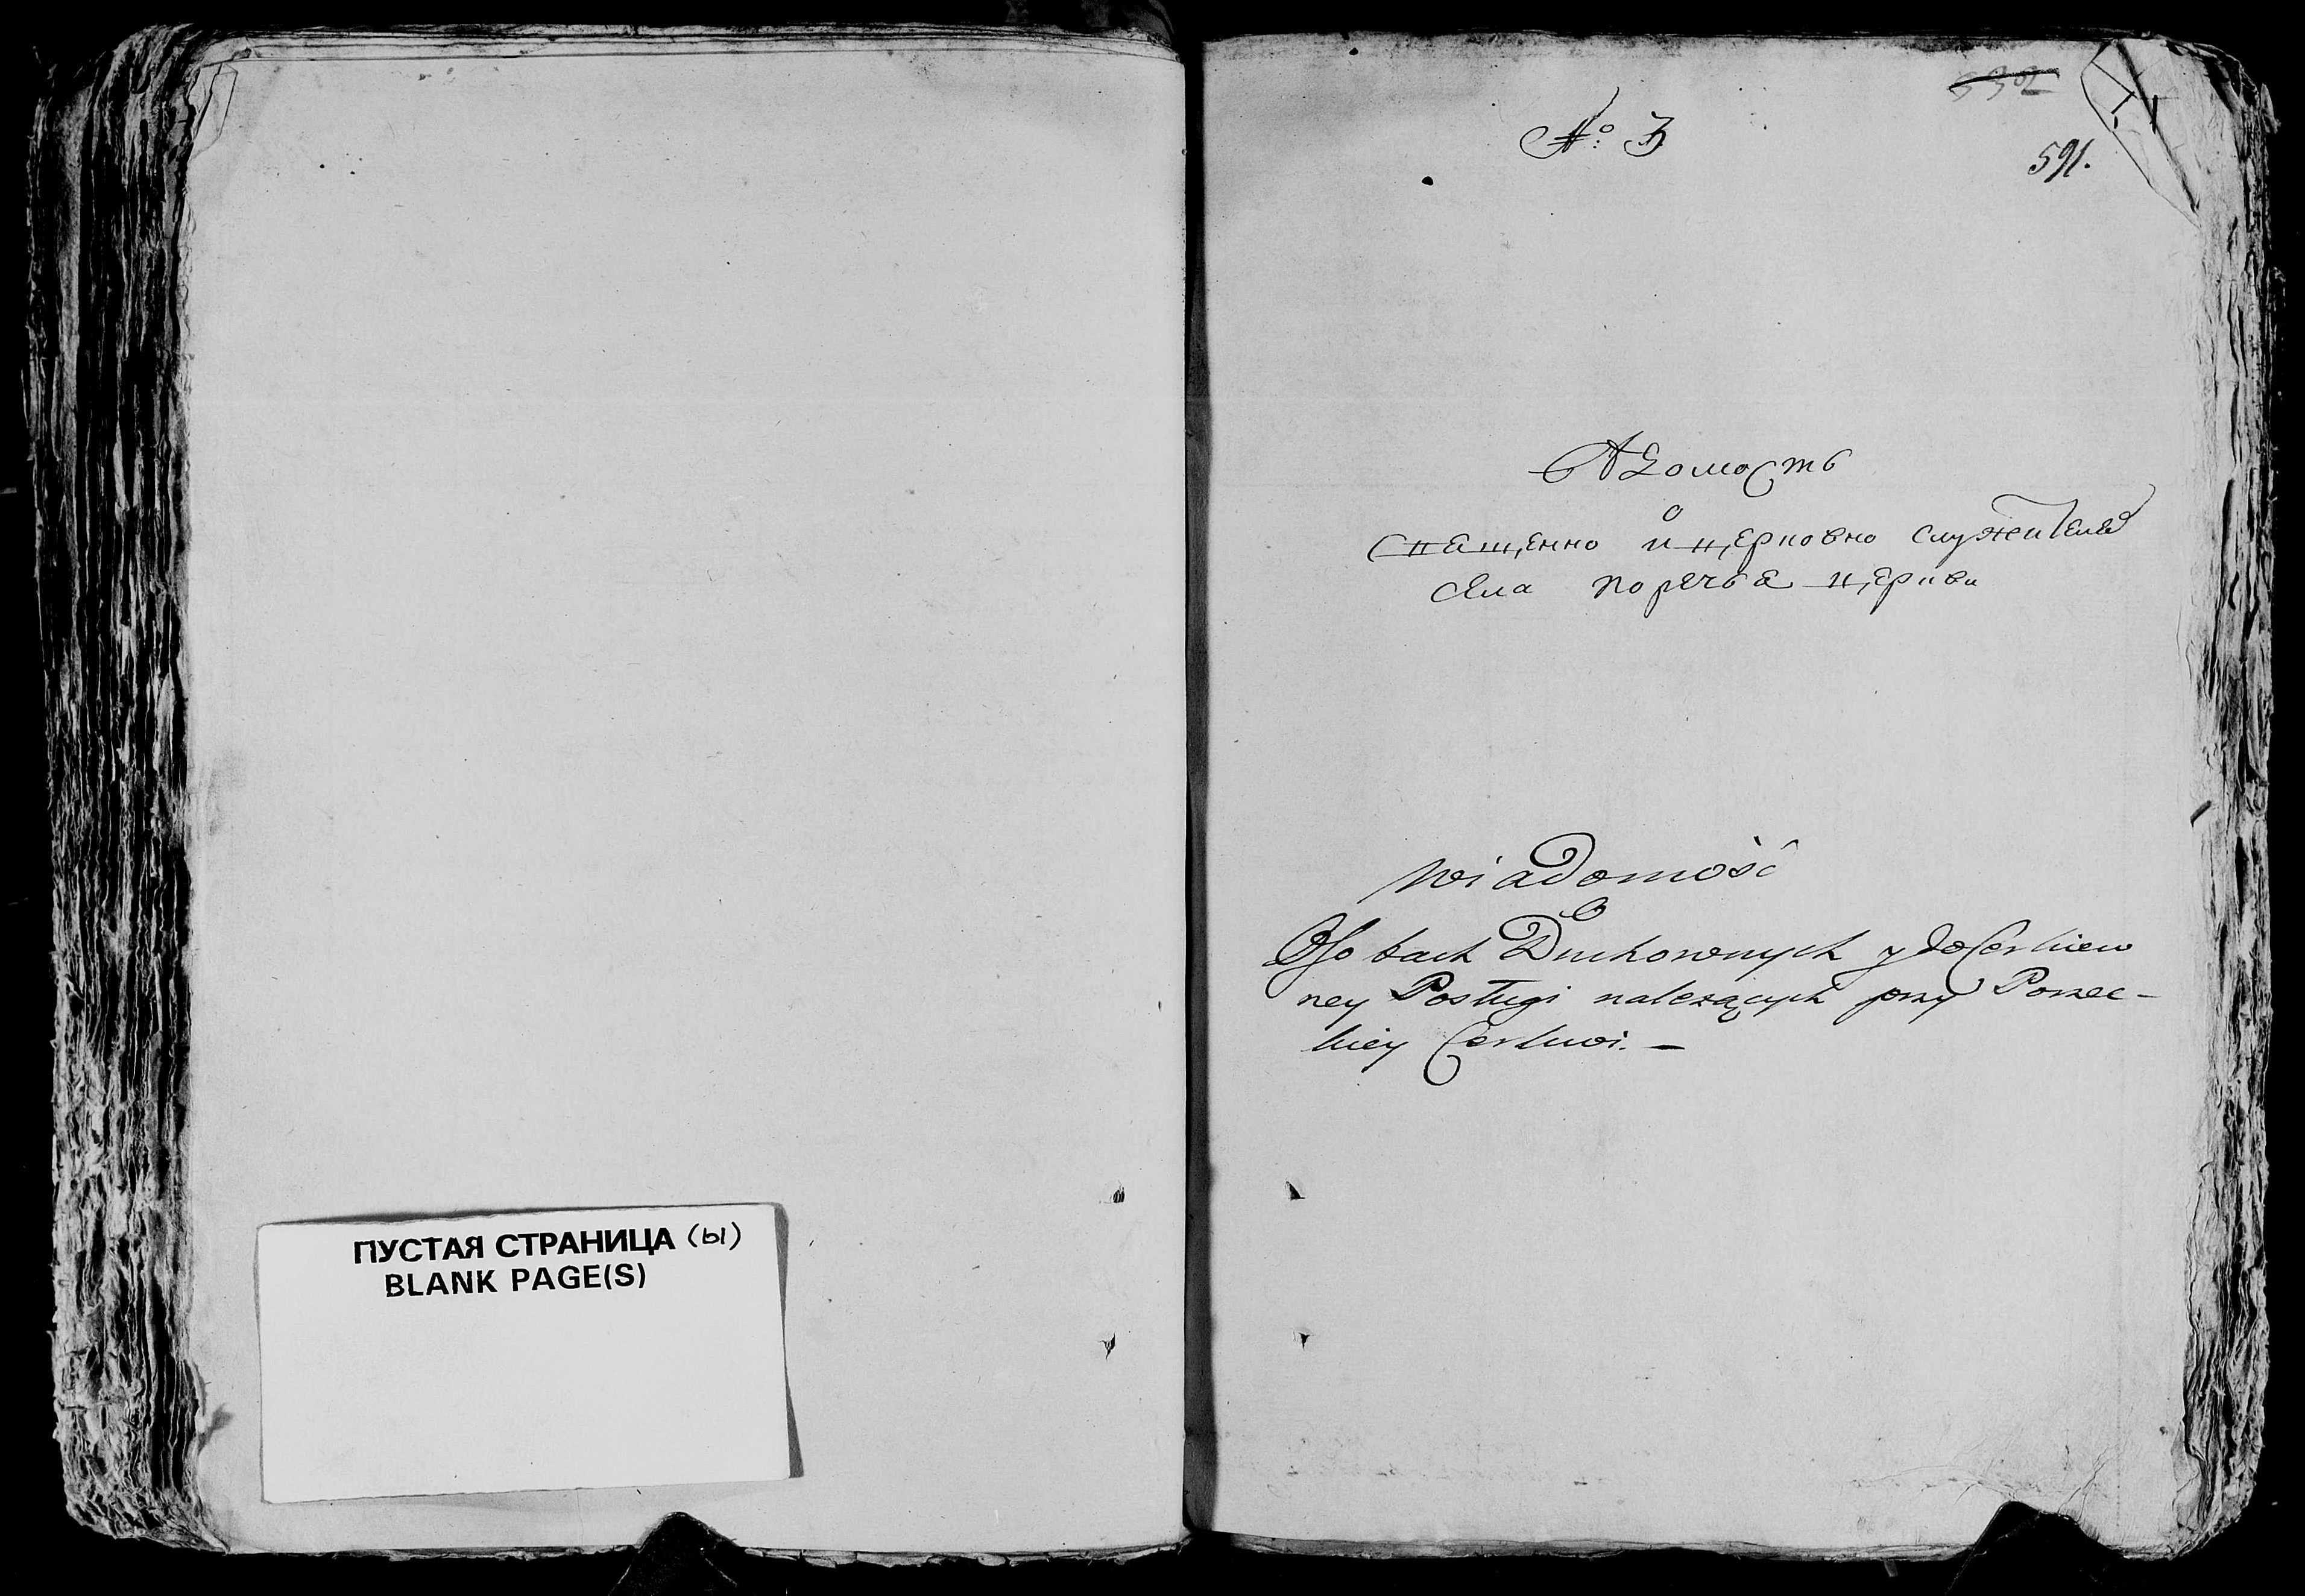 ПУСТАЯ СТРАНИЦА (Ы)
BLANK PAGE(S)
№ 3
591.
Вѣдомость
о
священно и церковно служителей
села Поречья церкви
Wiadomość
o
Osobach Duchownych y do Cerkiew
ney Posługi należących przy Porzec-
kiey Cerkwi.-